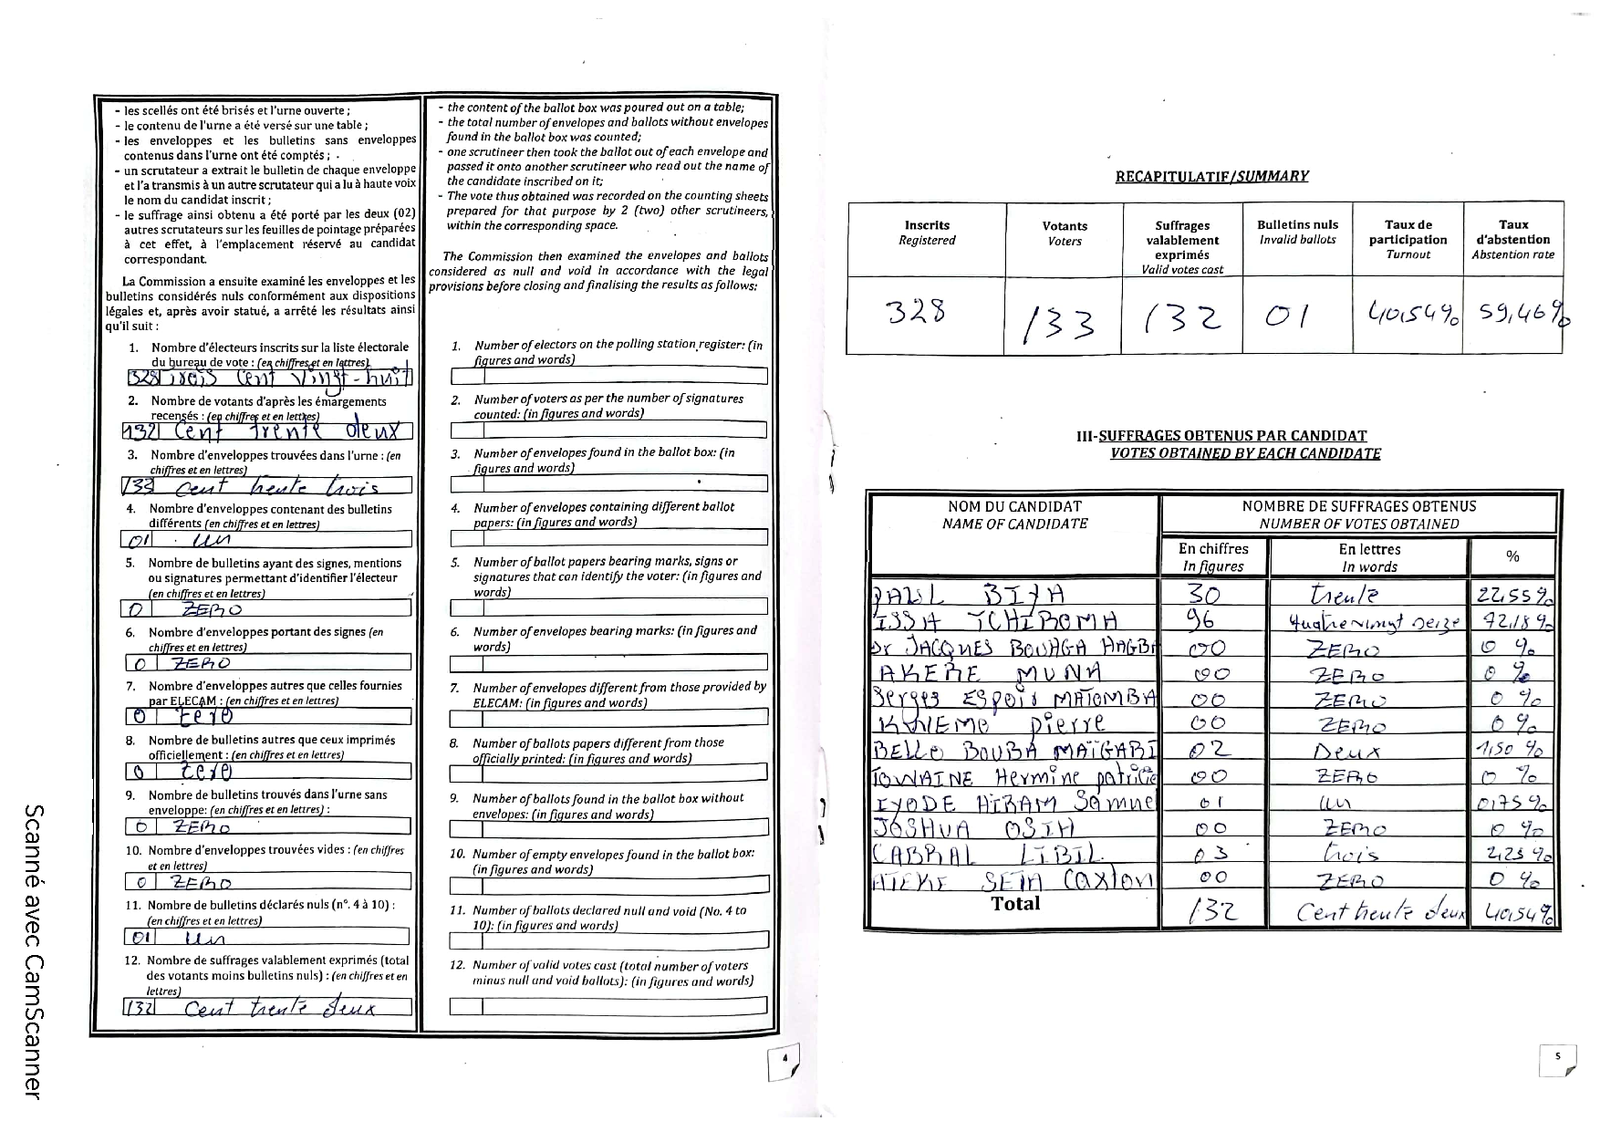 - les scellés ont été brisés et l'urne ouverte ;
- le contenu de l'urne a été versé sur une table ;
- les enveloppes et les bulletins sans enveloppes
contenus dans l'urne ont été comptés ;
- un scrutateur a extrait le bulletin de chaque enveloppe
et l'a transmis à un autre scrutateur qui a lu à haute voix
le nom du candidat inscrit ;
- le suffrage ainsi obtenu a été porté par les deux (02)
autres scrutateurs sur les feuilles de pointage préparées
à cet effet, à l'emplacement réservé au candidat
correspondant.
La Commission a ensuite examiné les enveloppes et les
bulletins considérés nuls conformément aux dispositions
légales et, après avoir statué, a arrêté les résultats ainsi
qu'il suit :
1. Nombre d'électeurs inscrits sur la liste électorale
du bureau de vote : (en chiffres et en lettres)
328 trois Cent Vingt-huit
2. Nombre de votants d'après les émargements
recensés : (en chiffres et en lettres)
132 Cent trente deux
3. Nombre d'enveloppes trouvées dans l'urne : (en
chiffres et en lettres)
133 cent trente trois
4. Nombre d'enveloppes contenant des bulletins
différents (en chiffres et en lettres)
01 un
5. Nombre de bulletins ayant des signes, mentions
ou signatures permettant d'identifier l'électeur
(en chiffres et en lettres)
0 ZERO
6. Nombre d'enveloppes portant des signes (en
chiffres et en lettres)
0 ZERO
7. Nombre d'enveloppes autres que celles fournies
par ELECAM : (en chiffres et en lettres)
0 zero
8. Nombre de bulletins autres que ceux imprimés
officiellement : (en chiffres et en lettres)
0 zero
9. Nombre de bulletins trouvés dans l'urne sans
enveloppe: (en chiffres et en lettres) :
0 ZERO
10. Nombre d'enveloppes trouvées vides : (en chiffres
et en lettres)
0 ZERO
11. Nombre de bulletins déclarés nuls (n°. 4 à 10) :
(en chiffres et en lettres)
01 un
12. Nombre de suffrages valablement exprimés (total
des votants moins bulletins nuls) : (en chiffres et en
lettres)
132 Cent trente deux
- the content of the ballot box was poured out on a table;
- the total number of envelopes and ballots without envelopes
found in the ballot box was counted;
- one scrutineer then took the ballot out of each envelope and
passed it onto another scrutineer who read out the name of
the candidate inscribed on it;
- The vote thus obtained was recorded on the counting sheets
prepared for that purpose by 2 (two) other scrutineers,
within the corresponding space.
The Commission then examined the envelopes and ballots
considered as null and void in accordance with the legal
provisions before closing and finalising the results as follows:
1. Number of electors on the polling station register: (in
figures and words)
2. Number of voters as per the number of signatures
counted: (in figures and words)
3. Number of envelopes found in the ballot box: (in
figures and words)
4. Number of envelopes containing different ballot
papers: (in figures and words)
5. Number of ballot papers bearing marks, signs or
signatures that can identify the voter: (in figures and
words)
6. Number of envelopes bearing marks: (in figures and
words)
7. Number of envelopes different from those provided by
ELECAM: (in figures and words)
8. Number of ballots papers different from those
officially printed: (in figures and words)
9. Number of ballots found in the ballot box without
envelopes: (in figures and words)
10. Number of empty envelopes found in the ballot box:
(in figures and words)
11. Number of ballots declared null and void (No. 4 to
10): (in figures and words)
12. Number of valid votes cast (total number of voters
minus null and void ballots): (in figures and words)
4
RECAPITULATIF/SUMMARY
Inscrits Registered
Votants Voters
Suffrages valablement exprimés Valid votes cast
Bulletins nuls Invalid ballots
Taux de participation Turnout
Taux d'abstention Abstention rate
328 133 132 01 40,54% 59,46%
III-SUFFRAGES OBTENUS PAR CANDIDAT
VOTES OBTAINED BY EACH CANDIDATE
NOM DU CANDIDAT NOMBRE DE SUFFRAGES OBTENUS
NAME OF CANDIDATE NUMBER OF VOTES OBTAINED
En chiffres En lettres %
In figures In words
PAUL BIYA 30 trente 22,55%
ISSA TCHIROMA 96 quatre vingt seize 72,18%
Dr JACQUES BOUAGA HAGBA 00 ZERO 0 %
AKERE MUNA 00 ZERO 0 %
Serges ESPOIR MATOMBA 00 ZERO 0 %
KWEMO Pierre 00 ZERO 0 %
BELLO BOUBA MAÏGARI 02 Deux 1,50 %
TOMAINE Hermine patricia 00 ZERO 0 %
IYODE HIRAM Samuel 01 un 0,75 %
JOSHUA OSIH 00 ZERO 0 %
CABRAL LIBIL 03 trois 2,25 %
ATEKE SETA Caxton 00 ZERO 0 %
Total 132 Cent trente deux 40,54%
5
Scanné avec CamScanner